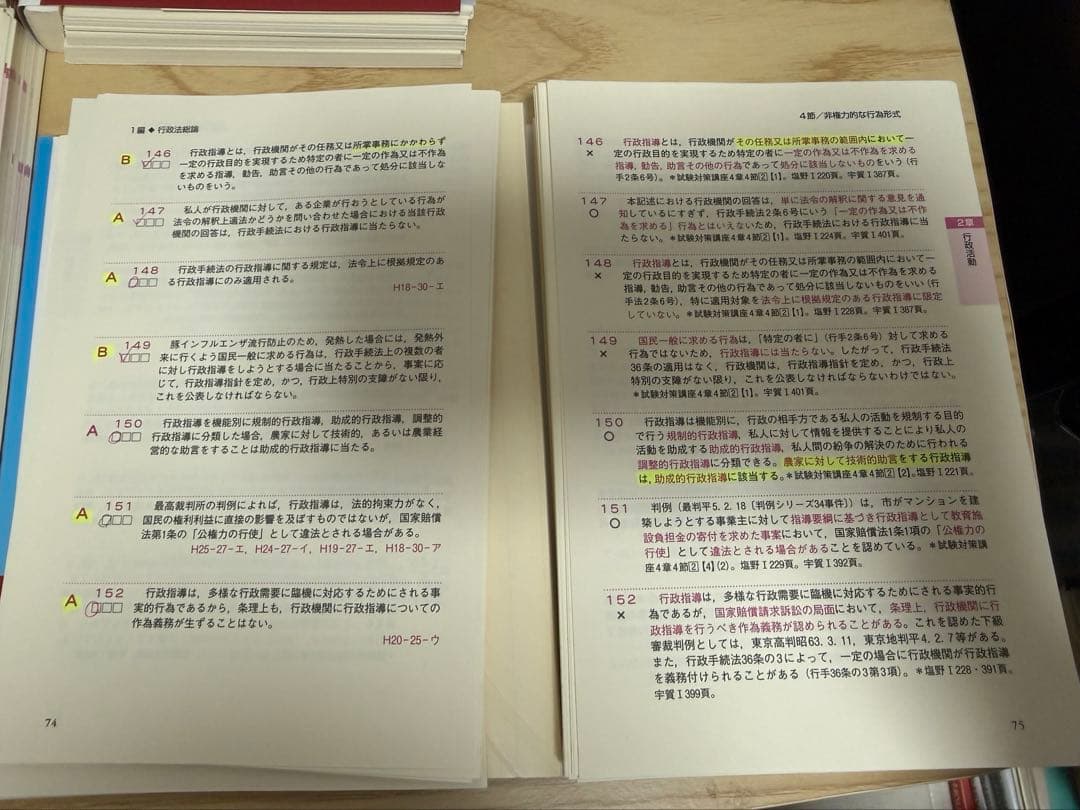 1編◆行政法総論
B 146 行政指導とは，行政機関がその任務又は所掌事務にかかわらず
一定の行政目的を実現するため特定の者に一定の作為又は不作為
を求める指導，勧告，助言その他の行為であって処分に該当しな
いものをいう。
A 147 私人が行政機関に対して，ある企業が行おうとしている行為が
法令の解釈上適法かどうかを問い合わせた場合における当該行政
機関の回答は，行政手続法における行政指導に当たらない。
A 148 行政手続法の行政指導に関する規定は，法令上に根拠規定のあ
る行政指導にのみ適用される。
H18-30-エ
B 149 豚インフルエンザ流行防止のため，発熱した場合には，発熱外
来に行くよう国民一般に求める行為は，行政手続法上の複数の者
に対し行政指導をしようとする場合に当たることから，事案に応
じて，行政指導指針を定め，かつ，行政上特別の支障がない限り，
これを公表しなければならない。
A 150 行政指導を機能別に規制的行政指導，助成的行政指導，調整的
行政指導に分類した場合，農家に対して技術的，あるいは農業経
営的な助言をすることは助成的行政指導に当たる。
A 151 最高裁判所の判例によれば，行政指導は，法的拘束力がなく，
国民の権利利益に直接の影響を及ぼすものではないが，国家賠償
法第1条の「公権力の行使」として違法とされる場合がある。
H25-27-エ，H24-27-イ，H19-27-エ，H18-30-ア
A 152 行政指導は，多様な行政需要に臨機に対応するためにされる事
実的行為であるから，条理上も，行政機関に行政指導についての
作為義務が生ずることはない。
H20-25-ウ
74
4節／非権力的な行為形式
146 行政指導とは，行政機関がその任務又は所掌事務の範囲内において一
× 定の行政目的を実現するため特定の者に一定の作為又は不作為を求める
指導，勧告，助言その他の行為であって処分に該当しないものをいう（行
手2条6号）。＊試験対策講座4章4節②【1】。塩野Ⅰ220頁。宇賀Ⅰ387頁。
147 本記述における行政機関の回答は，単に法令の解釈に関する意見を通
○ 知しているにすぎず，行政手続法2条6号にいう「一定の作為又は不作
為を求める」行為とはいえないため，行政手続法における行政指導に当
たらない。＊試験対策講座4章4節②【1】。塩野Ⅰ224頁。宇賀Ⅰ401頁。
148 行政指導とは，行政機関がその任務又は所掌事務の範囲内において一
× 定の行政目的を実現するため特定の者に一定の作為又は不作為を求める
指導，勧告，助言その他の行為であって処分に該当しないものをいい（行
手法2条6号），特に適用対象を法令上に根拠規定のある行政指導に限定
していない。＊試験対策講座4章4節②【1】。塩野Ⅰ228頁。宇賀Ⅰ387頁。
149 国民一般に求める行為は，「特定の者に」（行手2条6号）対して求める
× 行為ではないため，行政指導には当たらない。したがって，行政手続法
36条の適用はなく，行政機関は，行政指導指針を定め，かつ，行政上
特別の支障がない限り，これを公表しなければならないわけではない。
＊試験対策講座4章4節②【1】。宇賀Ⅰ401頁。
150 行政指導は機能別に，行政の相手方である私人の活動を規制する目的
○ で行う規制的行政指導，私人に対して情報を提供することにより私人の
活動を助成する助成的行政指導，私人間の紛争の解決のために行われる
調整的行政指導に分類できる。農家に対して技術的助言をする行政指導
は，助成的行政指導に該当する。＊試験対策講座4章4節②【2】。塩野Ⅰ221頁。
151 判例（最判平5.2.18〔判例シリーズ34事件〕）は，市がマンションを建
○ 築しようとする事業主に対して指導要綱に基づき行政指導として教育施
設負担金の寄付を求めた事案において，国家賠償法1条1項の「公権力の
行使」として違法とされる場合があることを認めている。＊試験対策講
座4章4節②【4】（2）。塩野Ⅰ229頁。宇賀Ⅰ392頁。
152 行政指導は，多様な行政需要に臨機に対応するためにされる事実的行
× 為であるが，国家賠償請求訴訟の局面において，条理上，行政機関に行
政指導を行うべき作為義務が認められることがある。これを認めた下級
審裁判例としては，東京高判昭63.3.11，東京地判平4.2.7等がある。
また，行政手続法36条の3によって，一定の場合に行政機関が行政指導
を義務付けられることがある（行手36条の3第3項）。＊塩野Ⅰ228・391頁。
宇賀Ⅰ399頁。
2章
行政活動
75